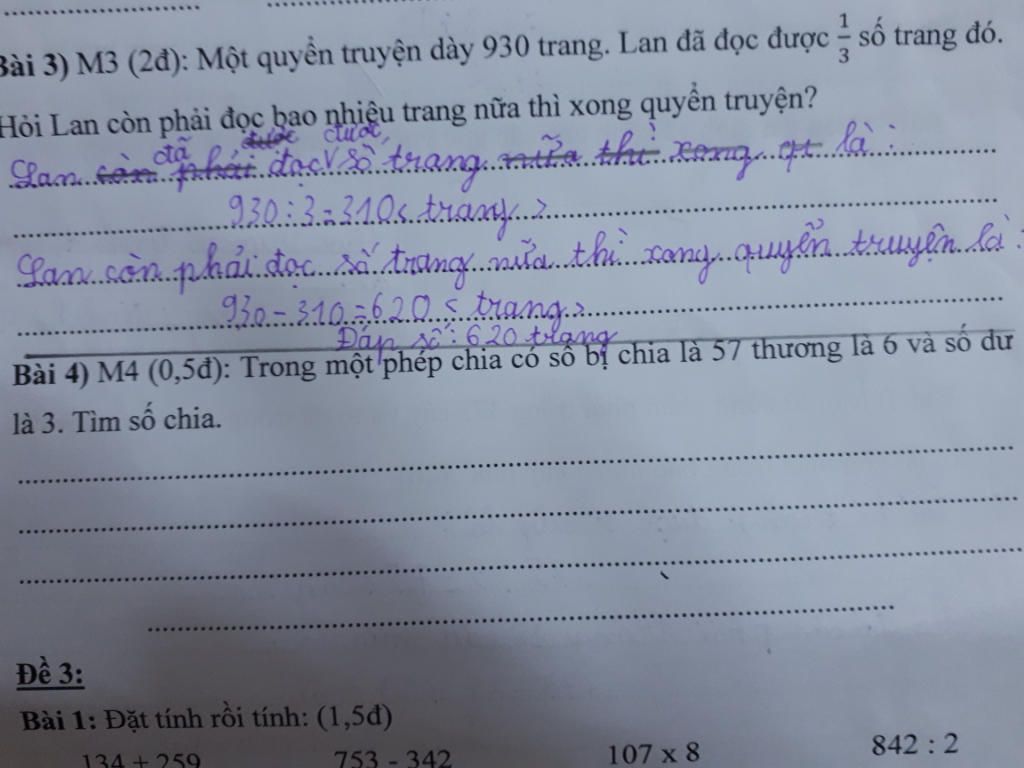 Bài 3) M3 (2đ): Một quyển truyện dày 930 trang. Lan đã đọc được 1/3 số trang đó.
Hỏi Lan còn phải đọc bao nhiêu trang nữa thì xong quyển truyện?
được được
Lan còn đã phải đọc số trang nữa thì xong qt là:
930:3=310< trang>
Lan còn phải đọc số trang nữa thì xong quyển truyện là:
930-310=620< trang>
Đáp số: 620 trang
Bài 4) M4 (0,5đ): Trong một phép chia có số bị chia là 57 thương là 6 và số dư
là 3. Tìm số chia.
Đề 3:
Bài 1: Đặt tính rồi tính: (1,5đ)
134 + 259 753 - 342 107 x 8 842 : 2